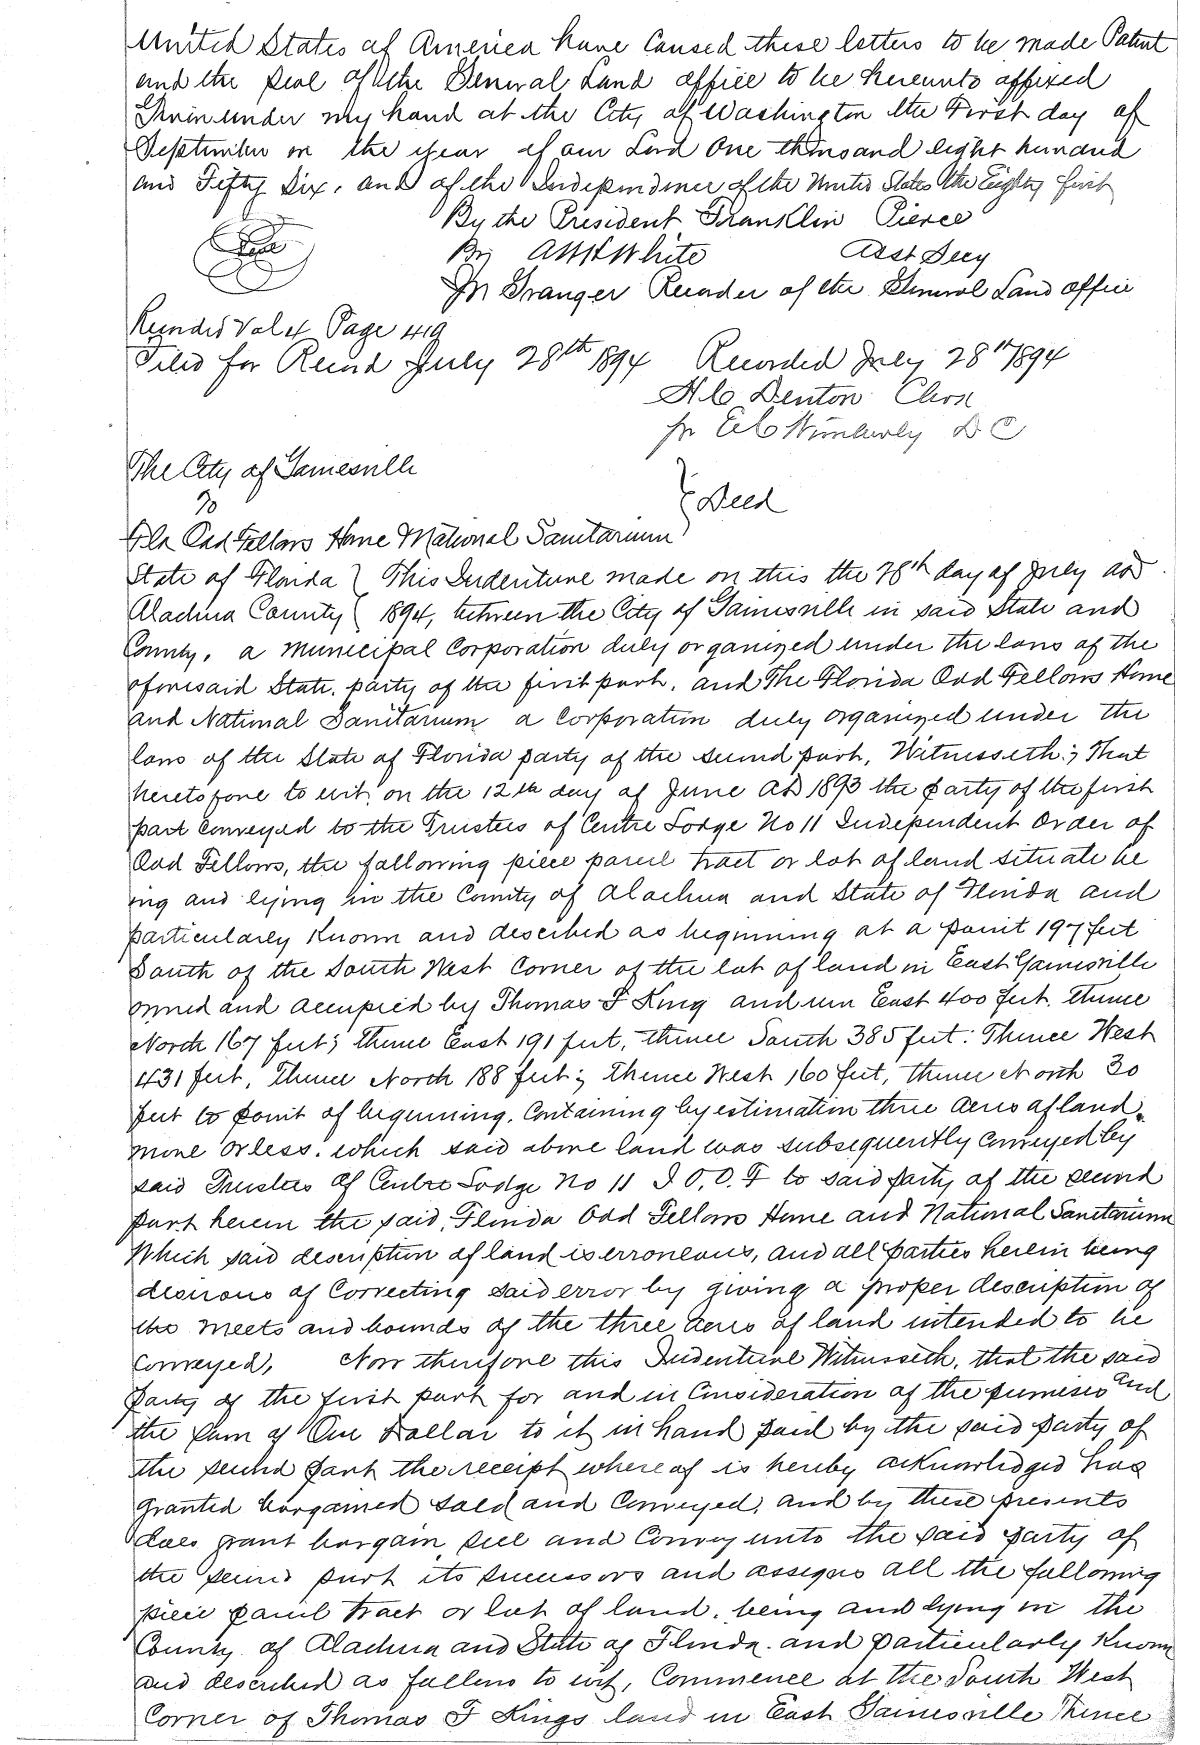 United States of America have Caused these letters to be made Patent
and the Seal of the General Land office to be hereunto affixed
Given under my hand at the City of Washington the First day of
September in the year of our Lord One thousand eight hundred
and Fifty Six, and of the Independence of the United States the Eighty first
By the President Franklin Pierce
By White Asst Secy
Granger Recorder of the General Land office
Seal
Recorded Vol 4 Page 419
Filed for Record July 28th 1894 Recorded July 28th 1894
H C Denton Clerk
pr E C Wimberly D C
The City of Gainesville
To
} Deed
Fla Odd Fellows Home & National Sanitarium
State of Florida } This Indenture made on this the 28th day of July AD
Alachua County { 1894, between the City of Gainesville in said State and
County, a municipal Corporation duly organized under the laws of the
aforesaid State, party of the first part, and The Florida Odd Fellows Home
and National Sanitarium a Corporation duly organized under the
laws of the State of Florida party of the second part, Witnesseth; That
heretofore to wit, on the 12th day of June AD 1893 the party of the first
part conveyed to the Trustees of Centre Lodge No 11 Independent Order of
Odd Fellows, the following piece parcel tract or lot of land situate be
ing and lying in the County of Alachua and State of Florida and
particularly Known and described as beginning at a point 197 feet
South of the South West Corner of the lot of land in East Gainesville
owned and occupied by Thomas F King and run East 400 feet, thence
North 167 feet; thence East 191 feet, thence South 385 feet: Thence West
431 feet, Thence North 188 feet; thence West 160 feet, thence North 30
feet to point of beginning. Containing by estimation three acres of land
more or less. which said above land was subsequently conveyed by
said Trustees of Centre Lodge No 11 I O. O. F to said party of the second
part herein the said, Florida Odd Fellows Home and National Sanitarium
Which said description of land is erroneous, and all parties herein being
desirous of Correcting said error by giving a proper description of
the meets and bounds of the three acres of land intended to be
conveyed, Now therefore this Indenture Witnesseth, that the said
party of the first part for and in Consideration of the premises and
the sum of One Dollar to it in hand paid by the said party of
the second part the receipt whereof is hereby acknowledged has
granted bargained sold and Conveyed, and by these presents
does grant bargain, sell and Convey unto the said party of
the second part its successors and assigns all the following
piece parcel tract or lot of land, being and lying in the
County of Alachua and State of Florida and particularly Known
and described as follows to wit, Commence at the South West
Corner of Thomas F Kings land in East Gainesville Thence